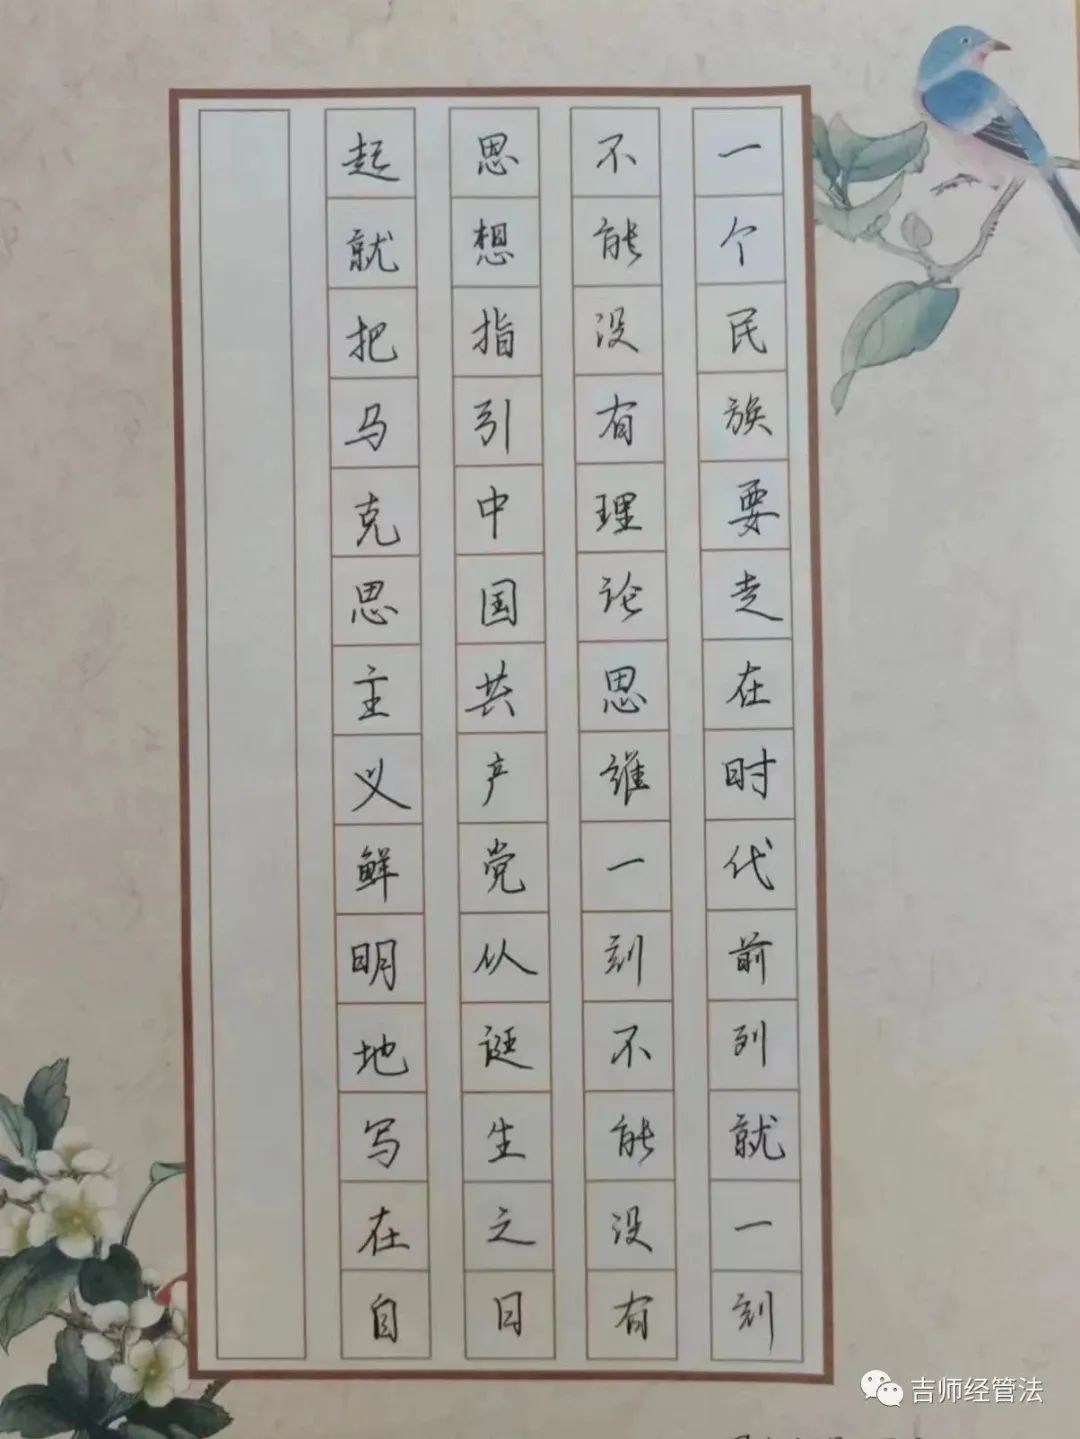 一个民族要走在时代前列就一刻
不能没有理论思维一刻不能没有
思想指引中国共产党从诞生之日
起就把马克思主义鲜明地写在自
吉师经管法